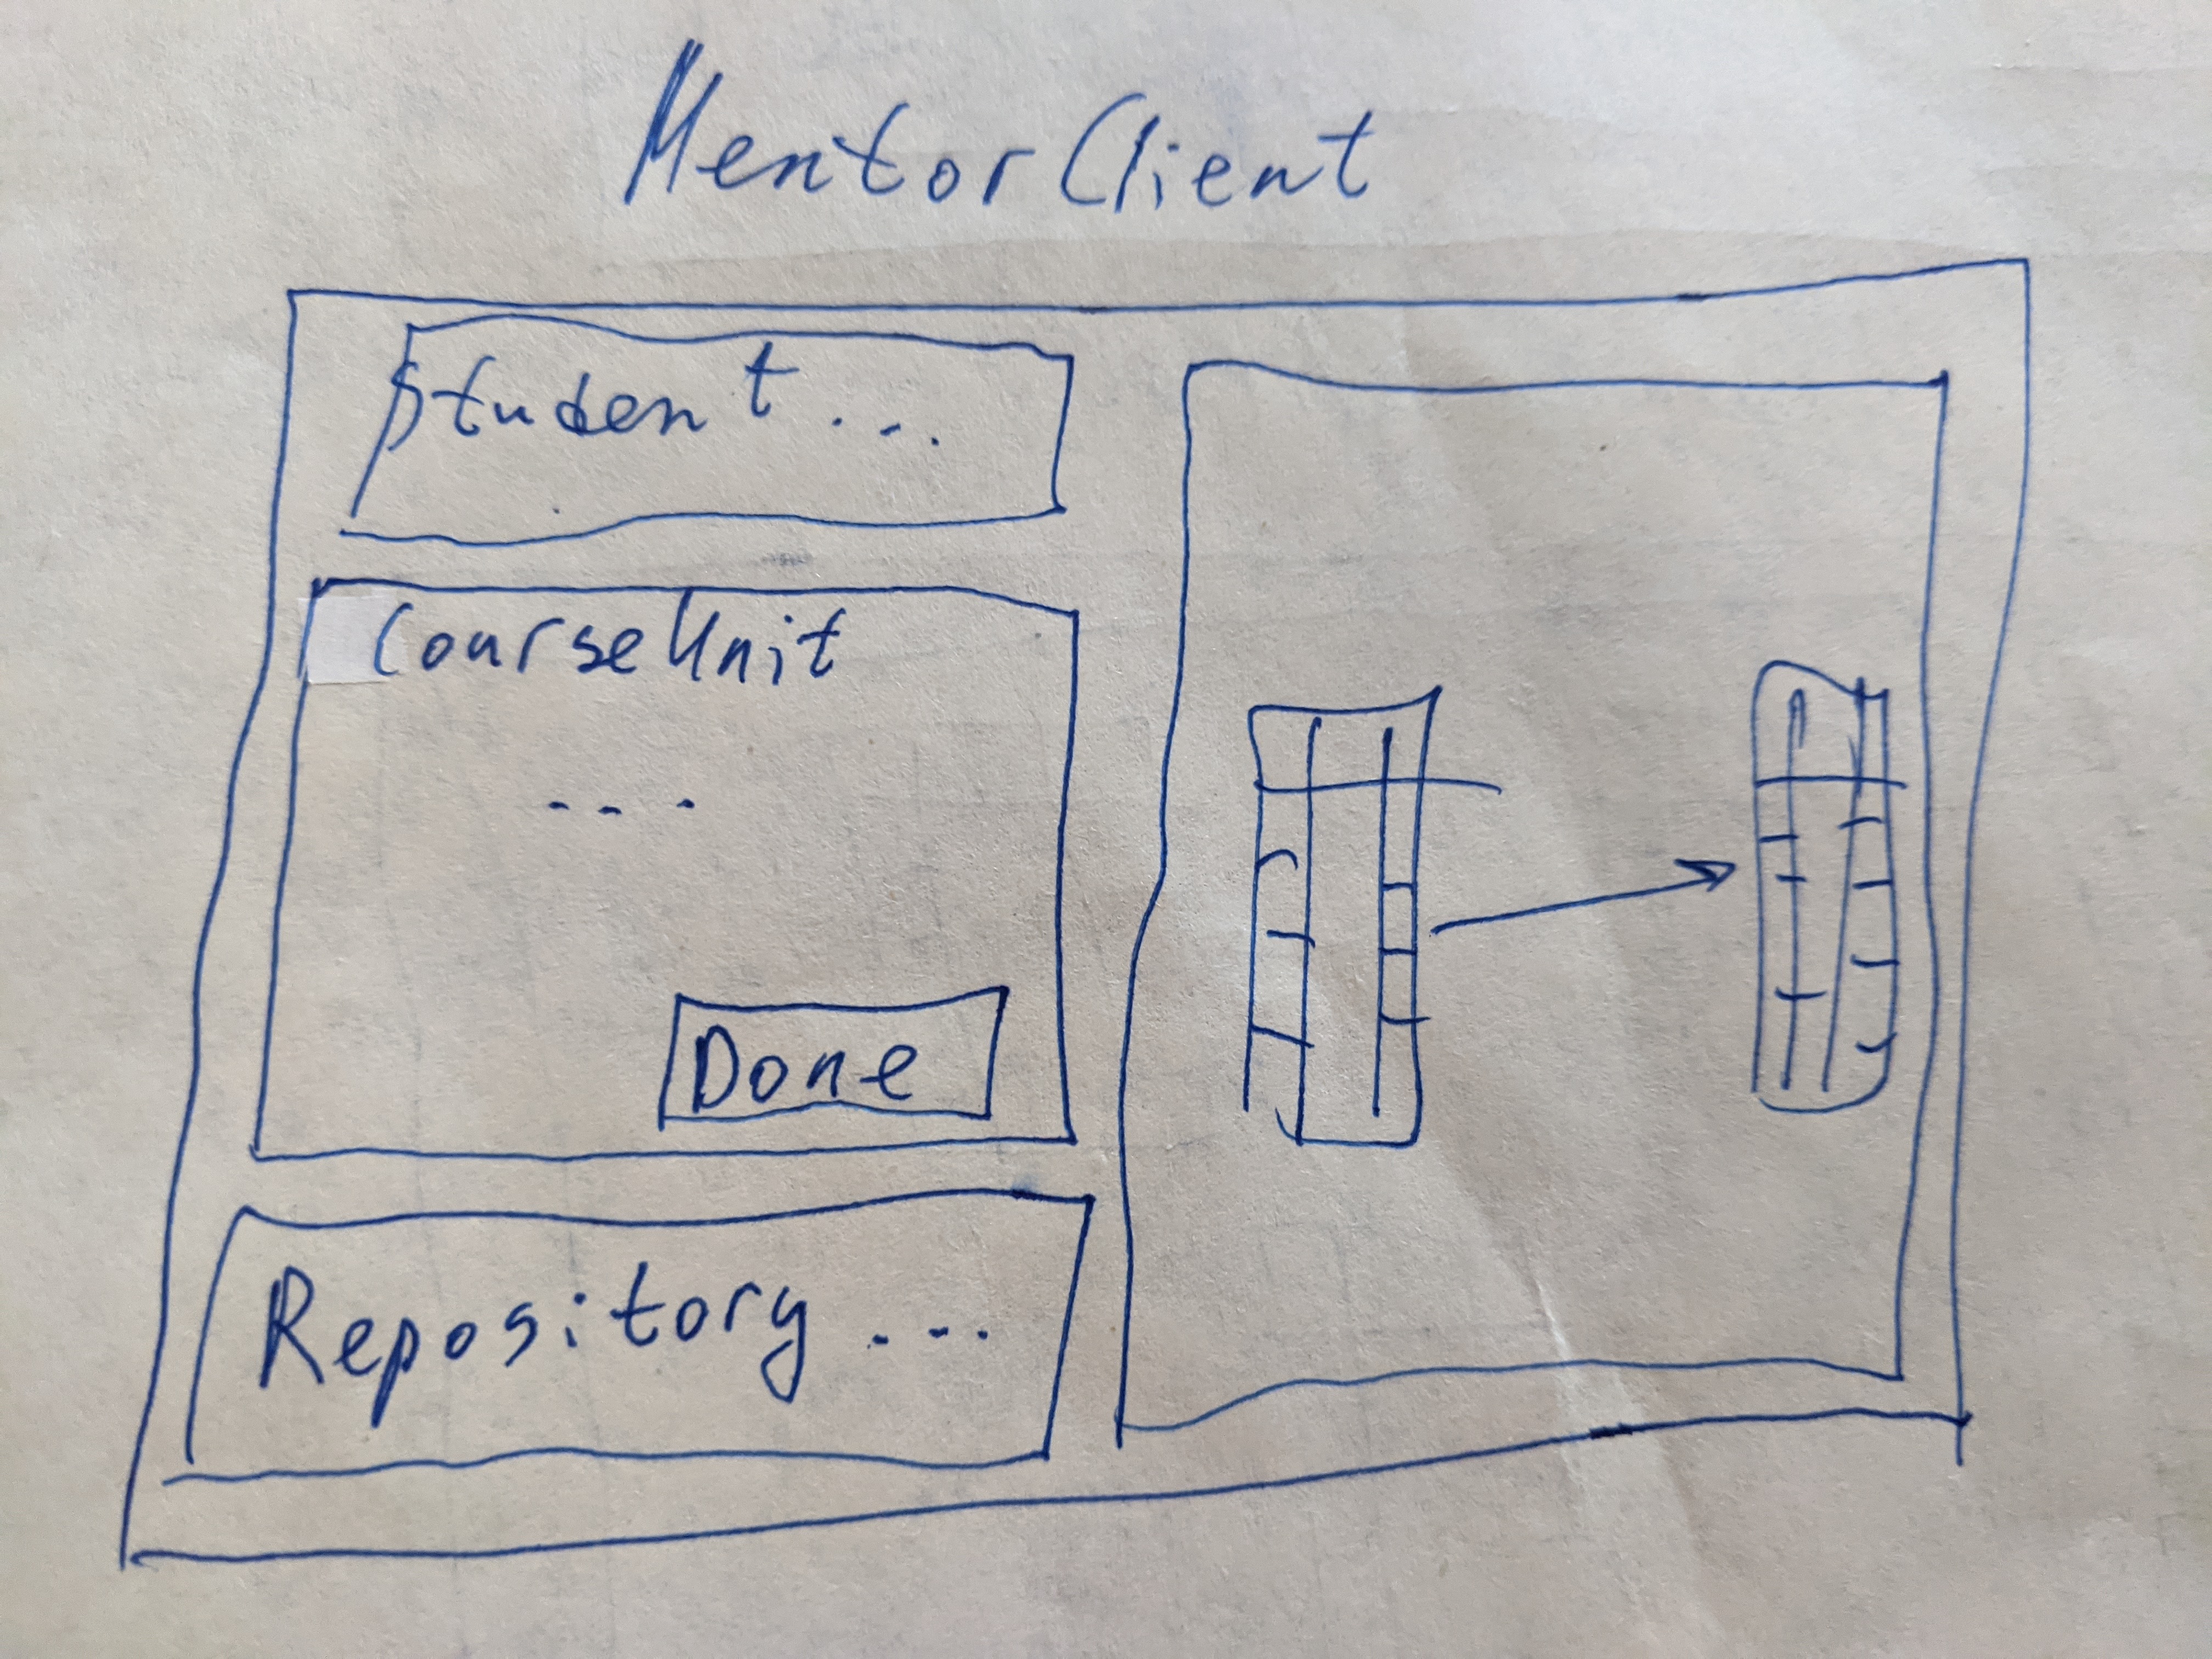 MentorClient
Student ...
CourseUnit
...
Done
Repository ...